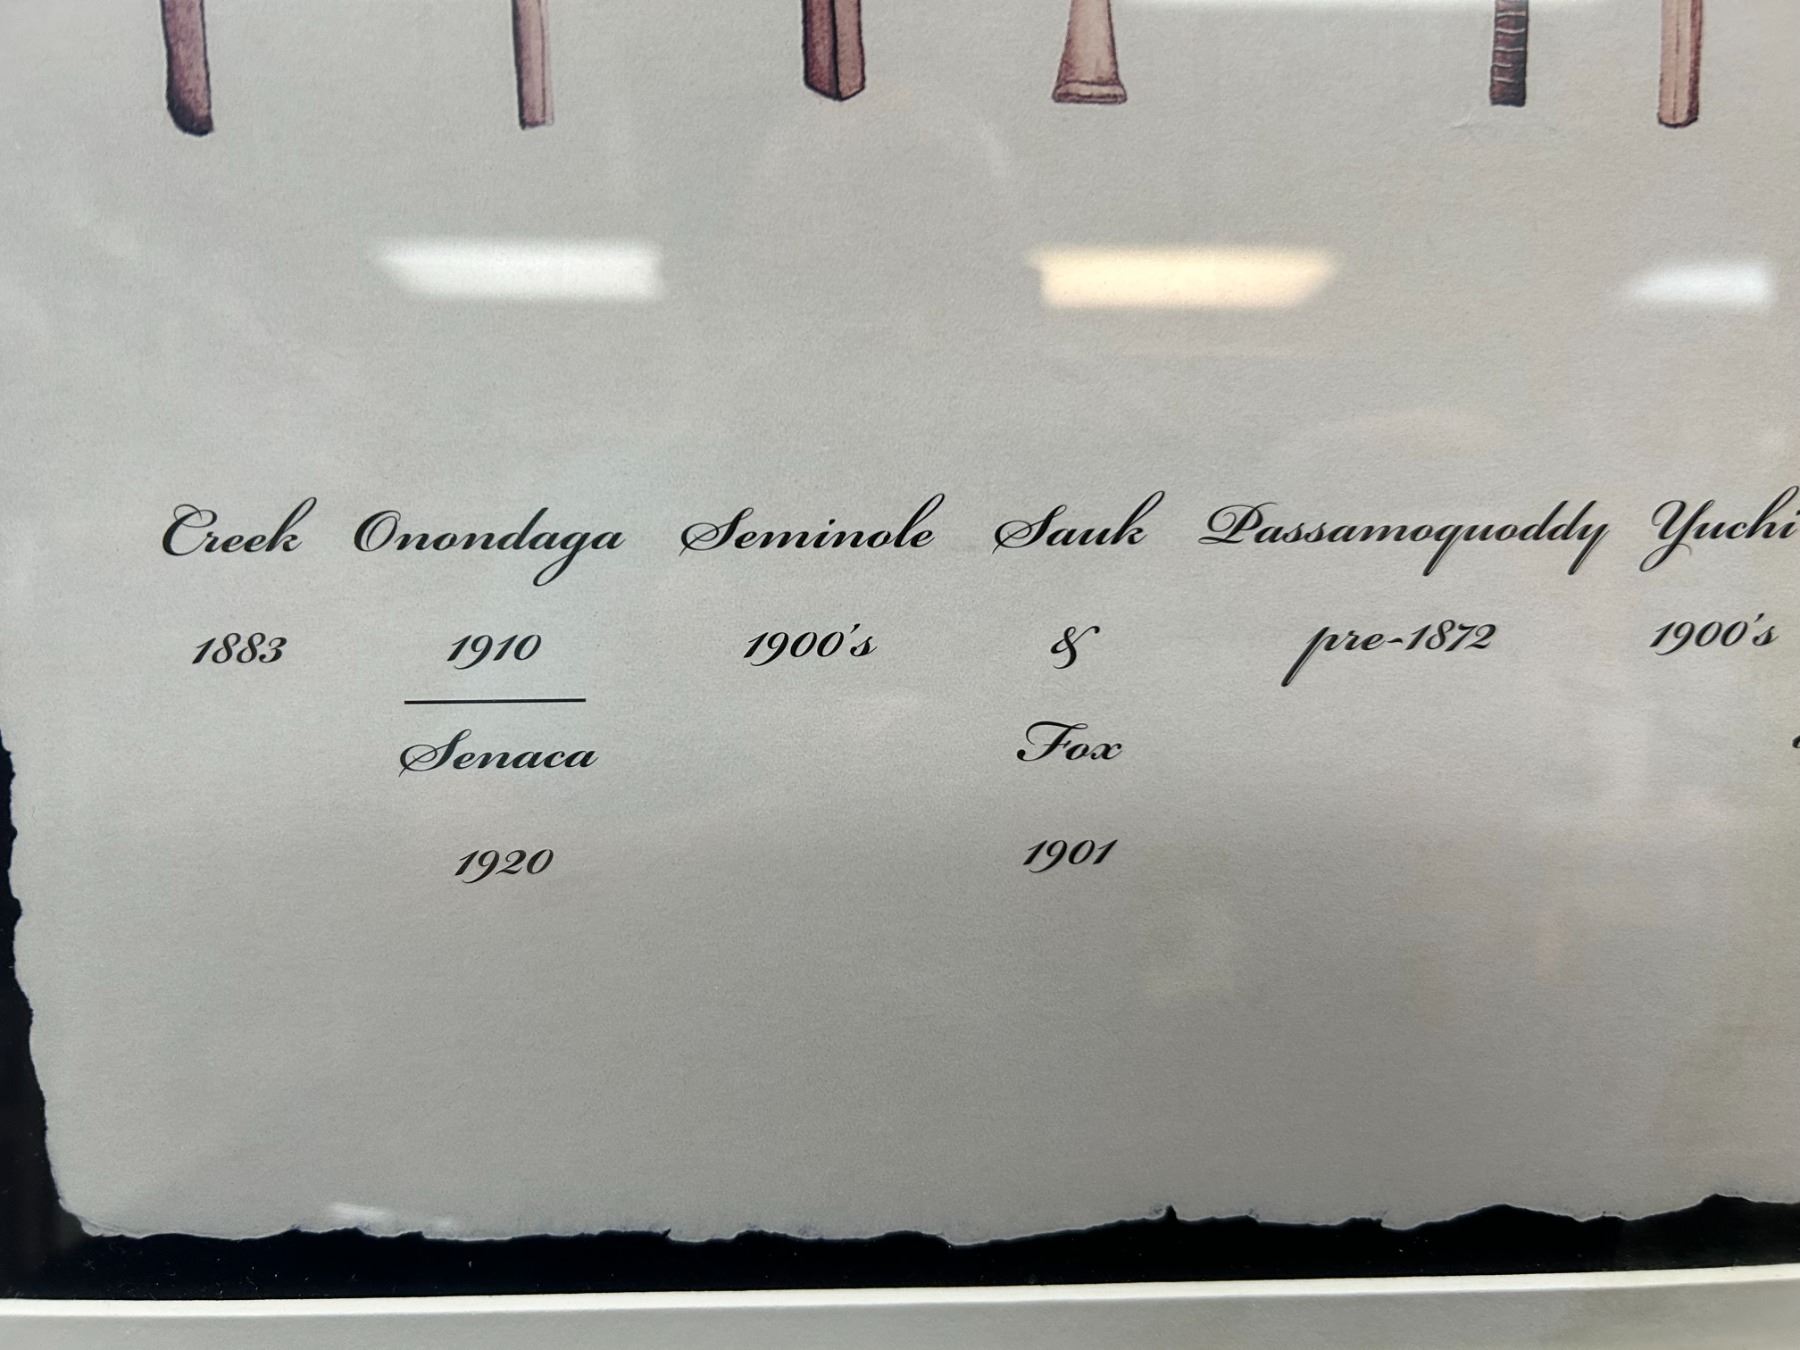 Creek Onondaga Seminole Sauk Passamoquoddy Yuchi
1883 1910 1900's & pre-1872 1900's
Senaca Fox
1920 1901